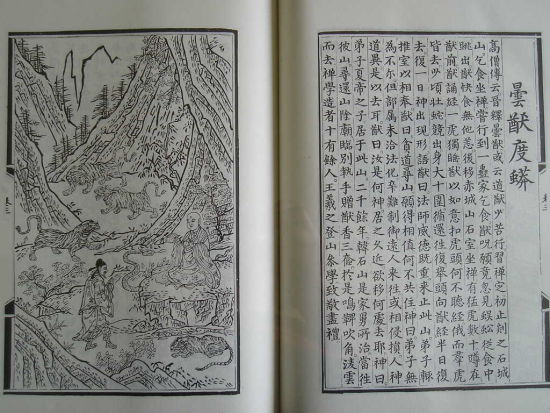 曇猷度蟒
高僧傳云晉釋曇猷或云道猷少苦行習禪定初止剡之石城
山乞食坐禪嘗行到一蠱家乞食猷呪願竟忽見蜈蚣從食中
跳出猷快食無他忌後移赤城山石室坐禪有猛虎數十蹲在
猷前猷誦經一虎獨睡猷以如意扣虎頭何不聽經俄而羣虎
皆去少頃壯蛇競出身大十圍循還往復舉頭向猷經半日復
去復一日神出現形語猷曰法師威德既重來止此山弟子輒
推室以相奉猷曰貧道尋山願得相值何不共住神曰弟子無
為不尔但部屬未洽法化卒難制御遠人來往或相侵損人神
道異是以去耳猷曰汝是何神居之久近欲移何處去耶神曰
弟子夏帝之子居于此山二千餘年韓石山是家舅所治當往
彼山尋還山陰廟臨別執手贈猷香三奩於是鳴鞞吹角凌雲
而去禪學造者十有餘人王羲之登山參學致敬盡禮